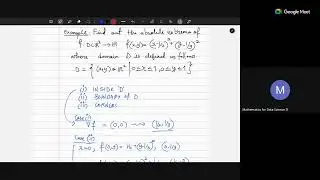 Google Meet
Example: Find out the absolute extrema of
f: D⊂R² → R f(x,y) = (x-1/2)² + (y-1/2)²
where domain D is defined as follows
D = { (x,y) ∈ R² | 0≤x≤1, 0≤y≤1 }
(i) INSIDE 'D'
(ii) BOUNDARY OF D
(iii) CORNERS
Case (i)
∇f = (0,0) → (1/2, 1/2)
Case (ii)
x=0, f(0,y) =
M
Mathematics for Data Science II